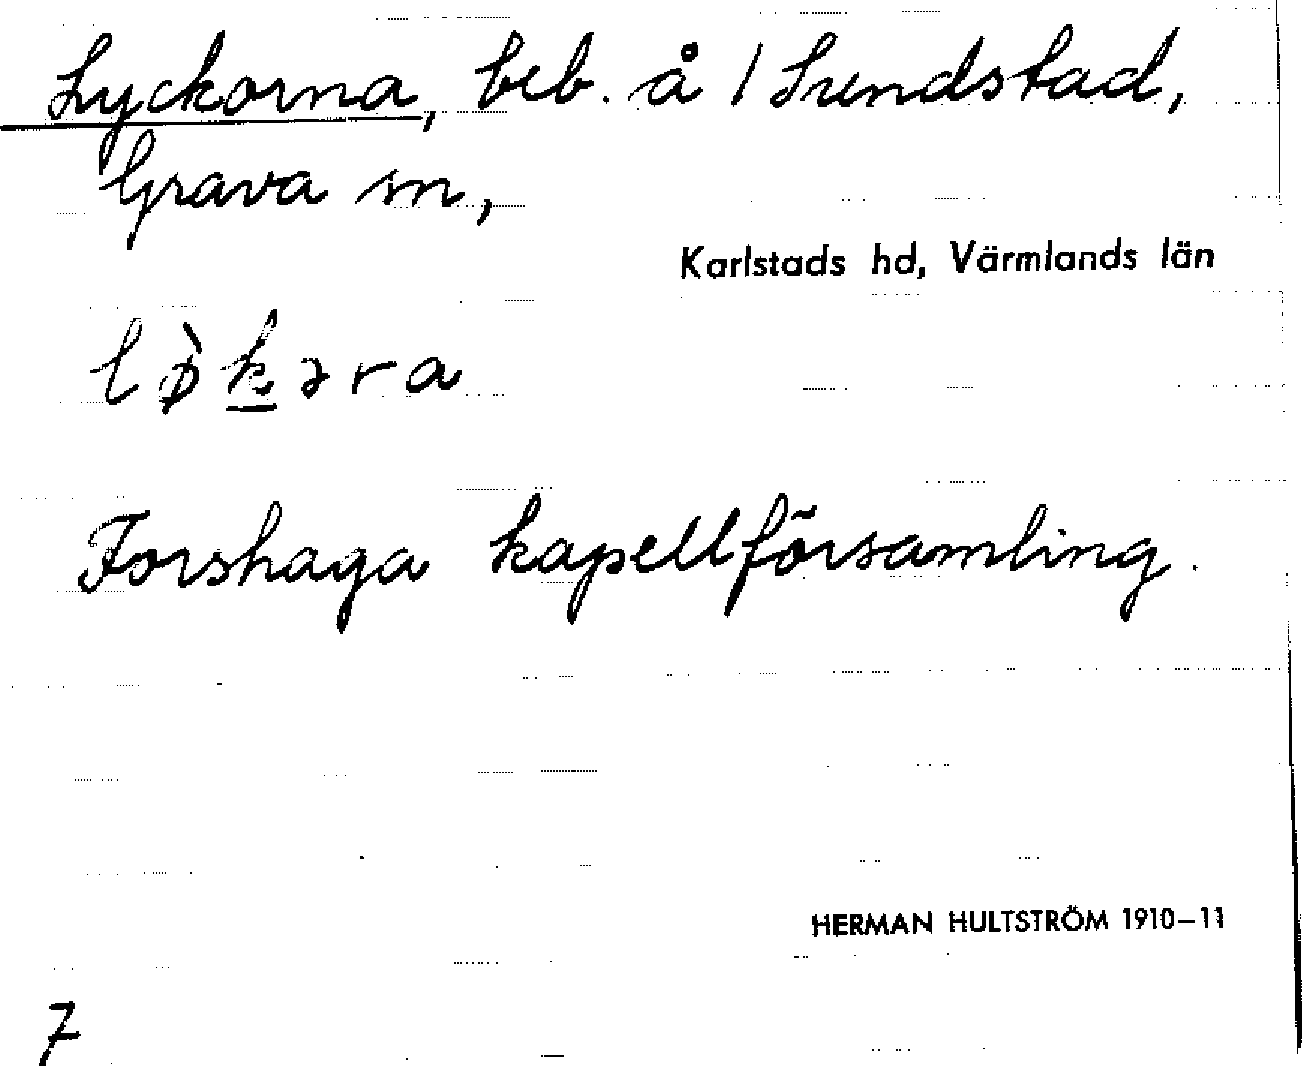 Lyckorna, beb. å 1 Sundstad,
Grava sn,
Karlstads hd, Värmlands län
lø̀k̲ǝra
Forshaga kapellförsamling.
HERMAN HULTSTRÖM 1910–11
7